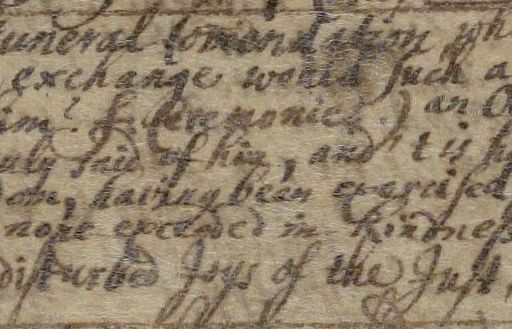 uneral Comendation wh
exchange would such a
im? &c. Ceremonies.) an O
uly said of him, and t is h
dom, having been exercised
none exceeded in Kindness
disturbed Joys of the Just,